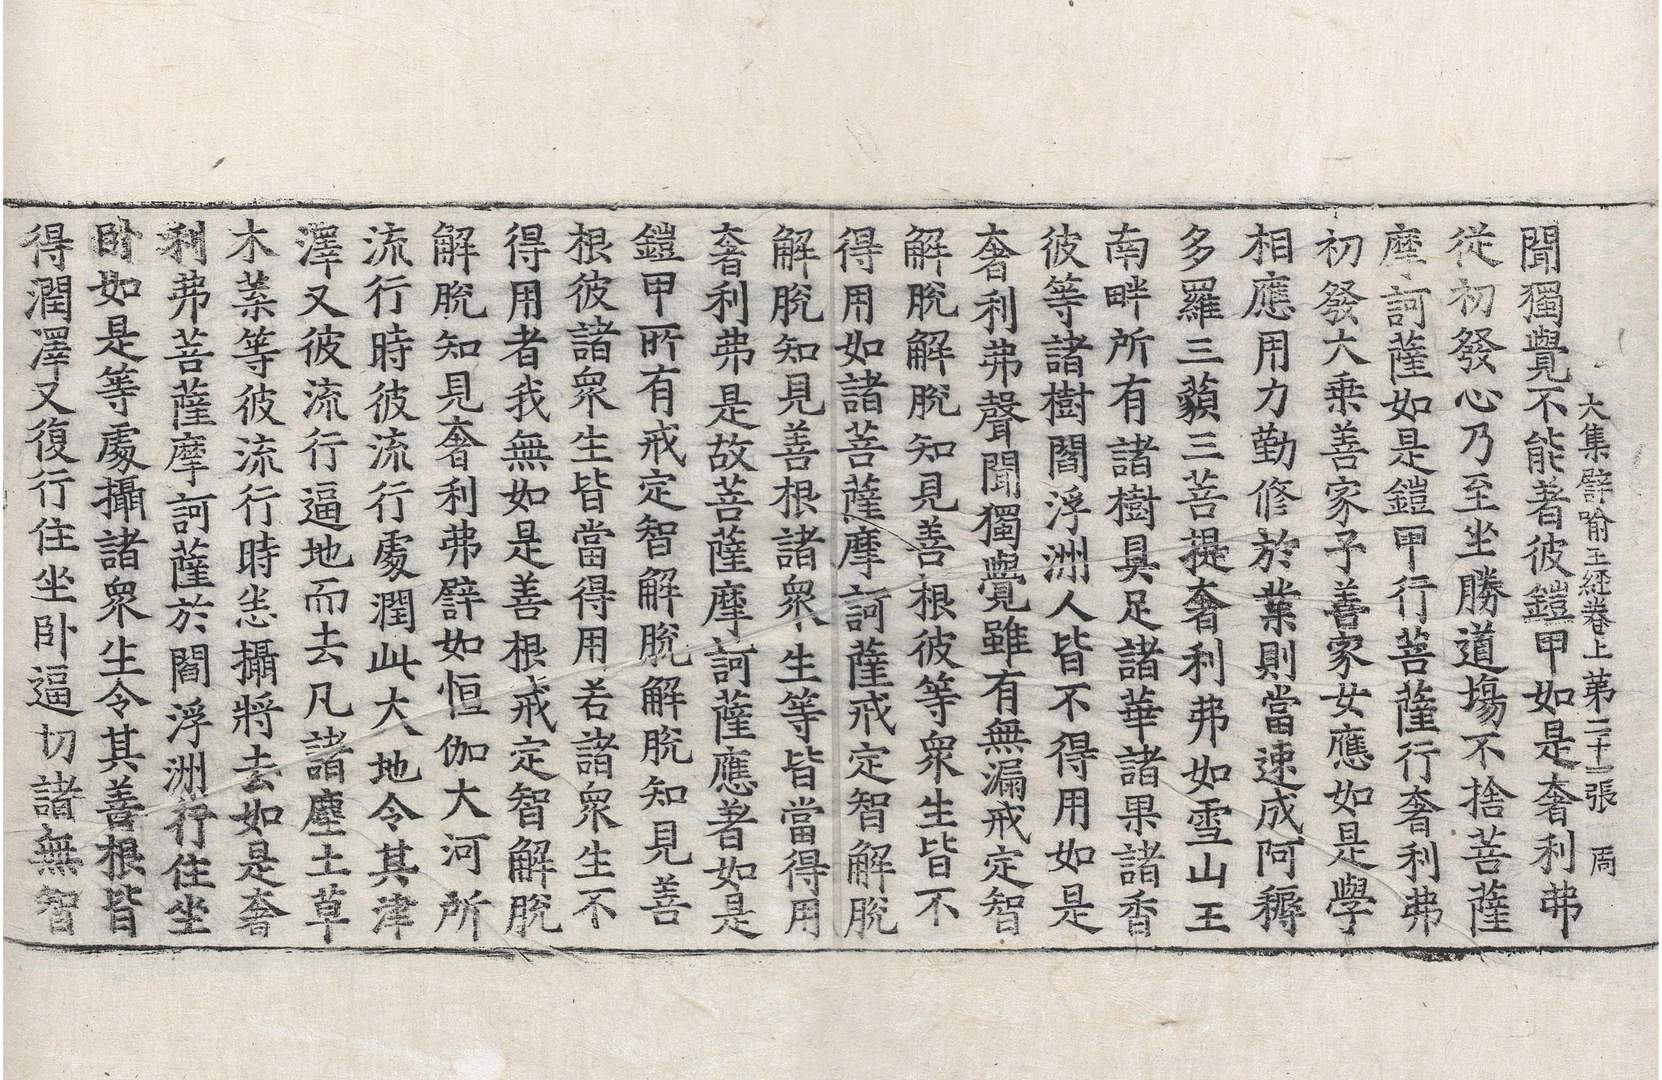 大集譬喻王經卷上 第二十一張 周
聞獨覺不能著彼鎧甲如是奢利弗
從初發心乃至坐勝道場不捨菩薩
摩訶薩如是鎧甲行菩薩行奢利弗
初發大乘善家子善家女應如是學
相應用力勤修於業則當速成阿耨
多羅三藐三菩提奢利弗如雪山王
南畔所有諸樹具足諸華諸果諸香
彼等諸樹閻浮洲人皆不得用如是
奢利弗聲聞獨覺雖有無漏戒定智
解脫解脫知見善根彼等眾生皆不
得用如諸菩薩摩訶薩戒定智解脫
解脫知見善根諸眾生等皆當得用
奢利弗是故菩薩摩訶薩應著如是
鎧甲所有戒定智解脫解脫知見善
根彼諸眾生皆當得用若諸眾生不
得用者我無如是善根戒定智解脫
解脫知見奢利弗譬如恒伽大河所
流行時彼流行處潤此大地令其津
澤又彼流行逼地而去凡諸塵土草
木葉等彼流行時悉攝將去如是奢
利弗菩薩摩訶薩於閻浮洲行住坐
卧如是等處攝諸眾生令其善根皆
得潤澤又復行住坐卧逼切諸無智